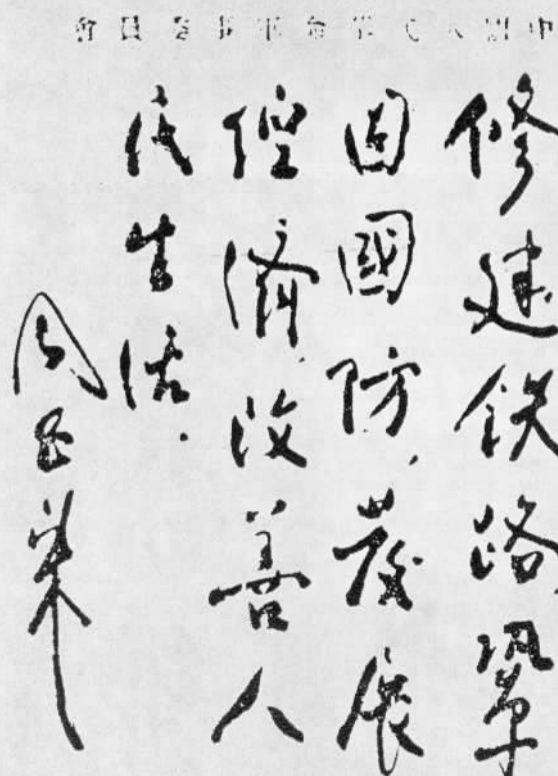 中國人民革命軍事委員會
修建鉄路、鞏
固國防、發展
經濟改善人
民生活.
周恩来